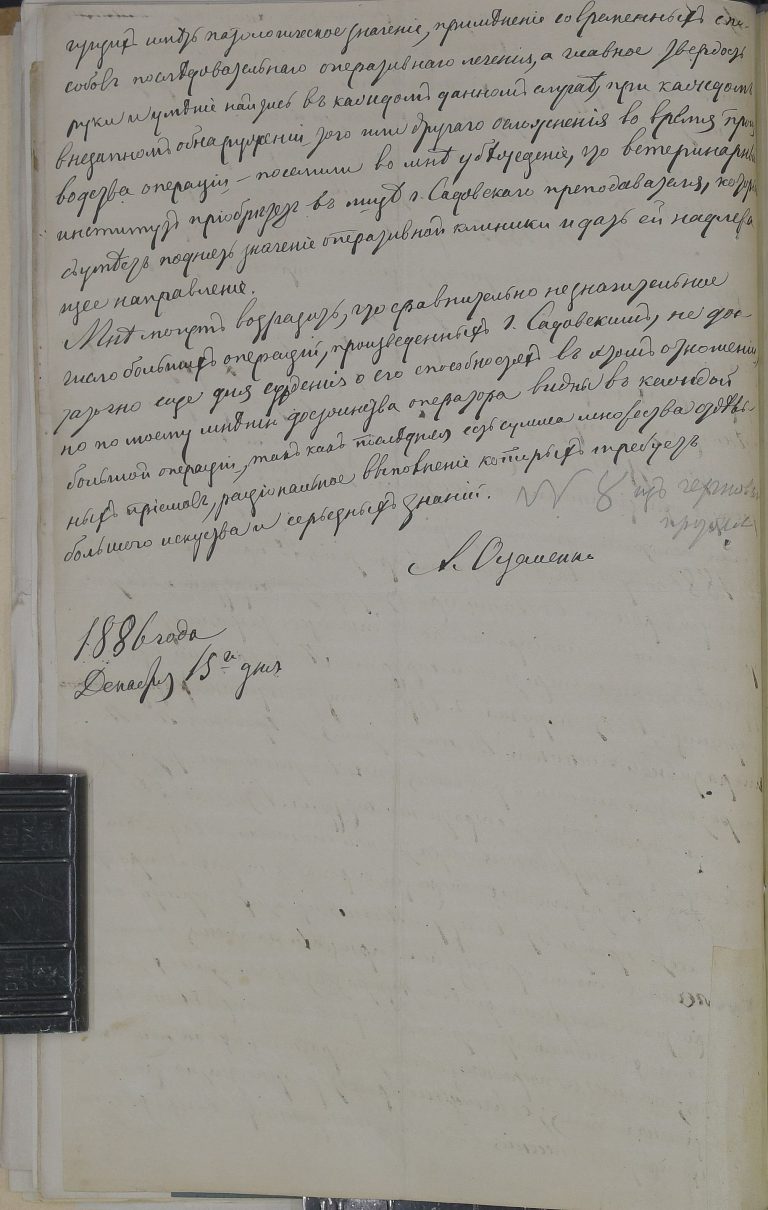 гущихъ имѣть патологическое значеніе, примѣненіе современныхъ спо-
собовъ послѣдовательнаго оперативнаго леченія, а главное твердость
руки и умѣніе найтись въ каждомъ данномъ случаѣ, при каждомъ
внезапномъ обнаруженіи того или другаго осложненія во время произ
водства операціи – поселили во мнѣ убѣжденіе, что ветеринарный
институтъ пріобрѣтетъ въ лицѣ г. Садовскаго преподавателя, который
съумѣетъ поднять значеніе оперативной клиники и дать ей надлежа
щее направленіе.
Мнѣ могутъ возразить, что сравнительно незначительное
число большихъ операцій, произведенныхъ г. Садовскимъ, не дос
таточно еще для сужденія о его способностяхъ въ этомъ отношеніи,
но по моему мнѣнію достоинства оператора видны въ каждой
большой операціи, такъ какъ послѣдняя есть сумма множества отдѣль-
ныхъ пріемовъ, раціональное выполненіе которыхъ требуетъ
большого искуства и серьезныхъ знаній.
А. Остапенко
1886 года
Декабря 15го дня